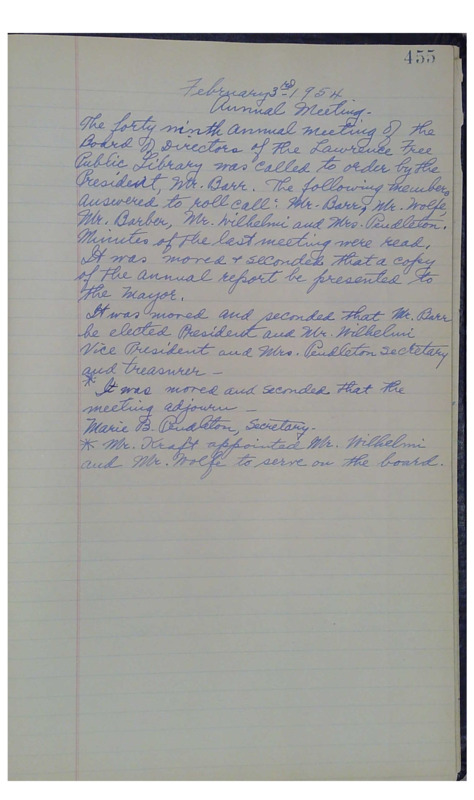 455
February 3rd 1954
Annual Meeting.
The forty ninth annual meeting of the
Board of Directors of the Lawrence Free
Public Library was called to order by the
President, Mr. Barr. The following members
answered to roll call: Mr. Barr, Mr. Wolfe,
Mr. Barber, Mr. Wilhelmi and Mrs. Pendleton.
Minutes of the last meeting were read.
It was moved + seconded that a copy
of the annual report be presented to
the Mayor.
It was moved and seconded that Mr. Barr
be elected President and Mr. Wilhelmi
Vice President and Mrs. Pendleton Secretary
and treasurer -
* It was moved and seconded that the
meeting adjourn -
Marie B. Pendleton, Secretary.
* Mr. Kraft appointed Mr. Wilhelmi
and Mr. Wolfe to serve on the board.